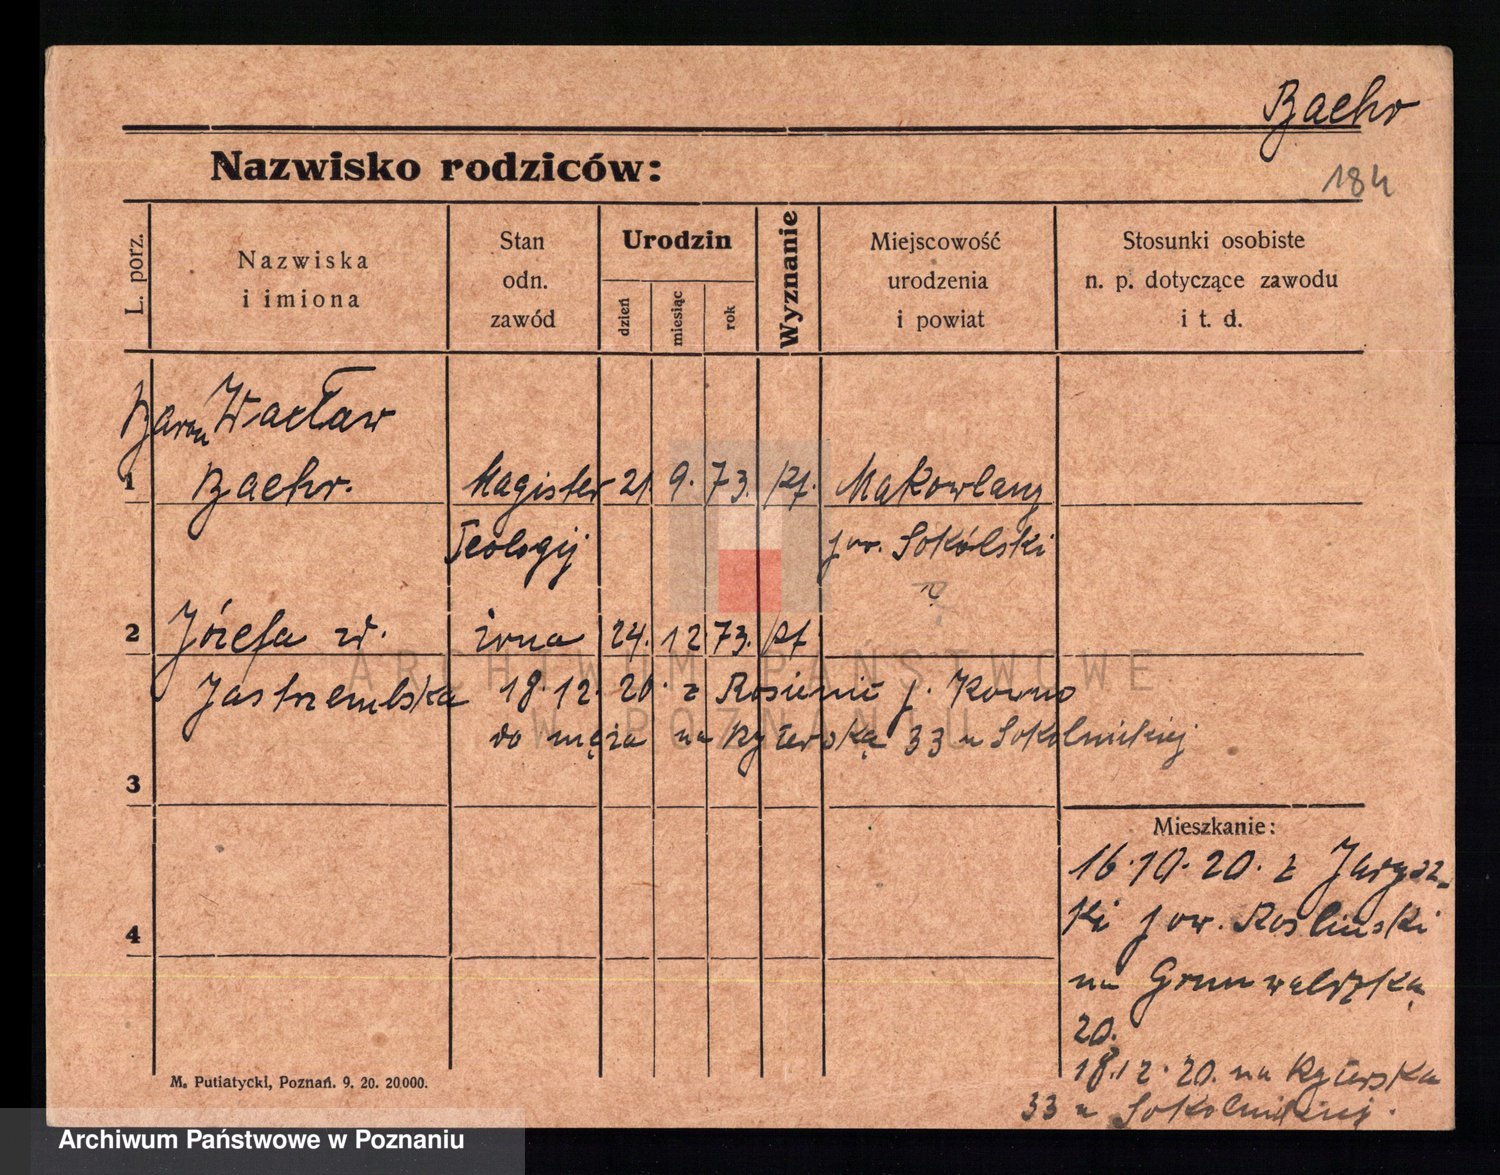 Baehr
184
Nazwisko rodziców:
L. porz.
Nazwiska
i imiona
Stan
odn.
zawód
Urodzin
dzień
miesiąc
rok
Wyznanie
Miejscowość
urodzenia
i powiat
Stosunki osobiste
n. p. dotyczące zawodu
i t. d.
Baron Wacław
1 Baehr. Magister 21 9. 73. Rf. Makowlany
Teologij pow. Sokólski
2 Józefa zd. żona 24. 12 73. Rf
Jastrzembska 18.12. 20. z Rosienie p. Kowno
do męża na Rycerską 33 u Sokolnickiej
3
4
Mieszkanie:
16.10.20. z
ki pow.
na Grunwaldzką
20.
18.12.20. na Rycerska
33 u Sokolnickiej.
M. Putiatycki, Poznań. 9. 20. 20000.
ARCHIWUM PAŃSTWOWE
W POZNANIU
Archiwum Państwowe w Poznaniu